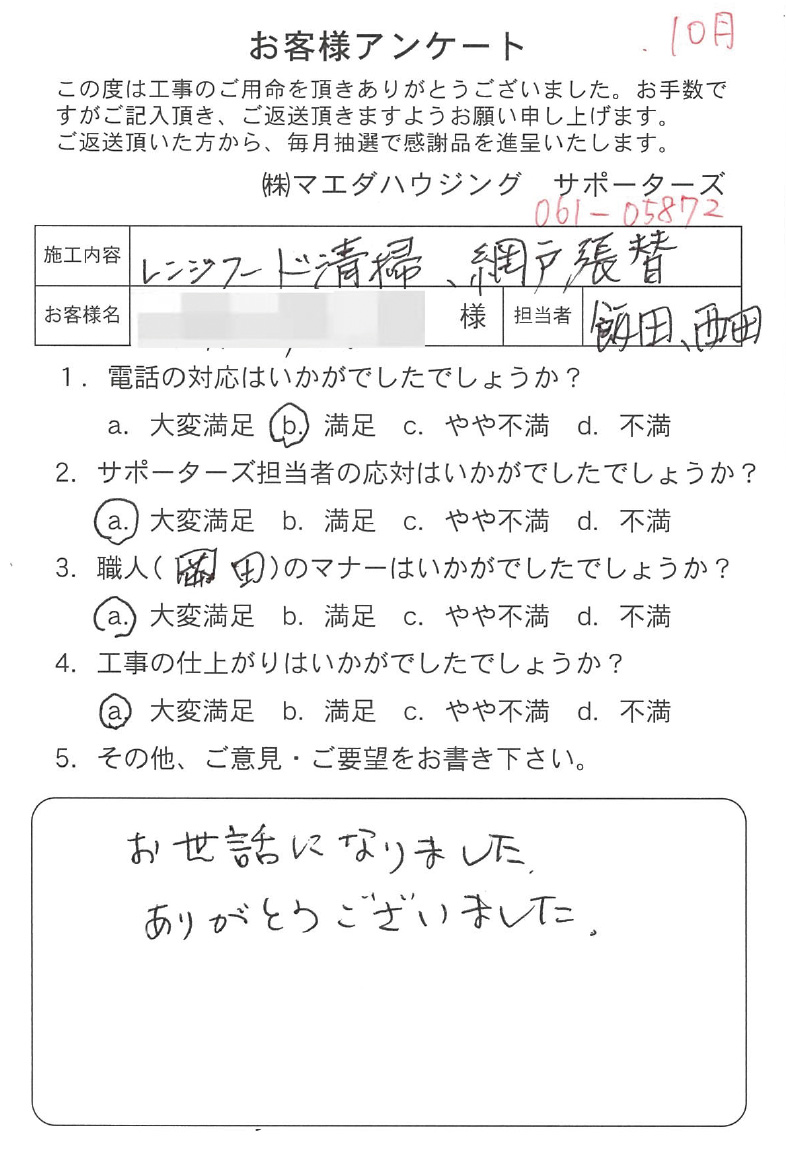 お客様アンケート
10月
この度は工事のご用命を頂きありがとうございました。お手数で
すがご記入頂き、ご返送頂きますようお願い申し上げます。
ご返送頂いた方から、毎月抽選で感謝品を進呈いたします。
㈱マエダハウジング　サポーターズ
061-05872
施工内容 レンジフード清掃、網戸張替
お客様名 様 担当者 飯田、西田
1. 電話の対応はいかがでしたでしょうか？
a. 大変満足 b. 満足 c. やや不満 d. 不満
2. サポーターズ担当者の応対はいかがでしたでしょうか？
a. 大変満足 b. 満足 c. やや不満 d. 不満
3. 職人( 田)のマナーはいかがでしたでしょうか？
a. 大変満足 b. 満足 c. やや不満 d. 不満
4. 工事の仕上がりはいかがでしたでしょうか？
a. 大変満足 b. 満足 c. やや不満 d. 不満
5. その他、ご意見・ご要望をお書き下さい。
お世話になりました.
ありがとうございました.